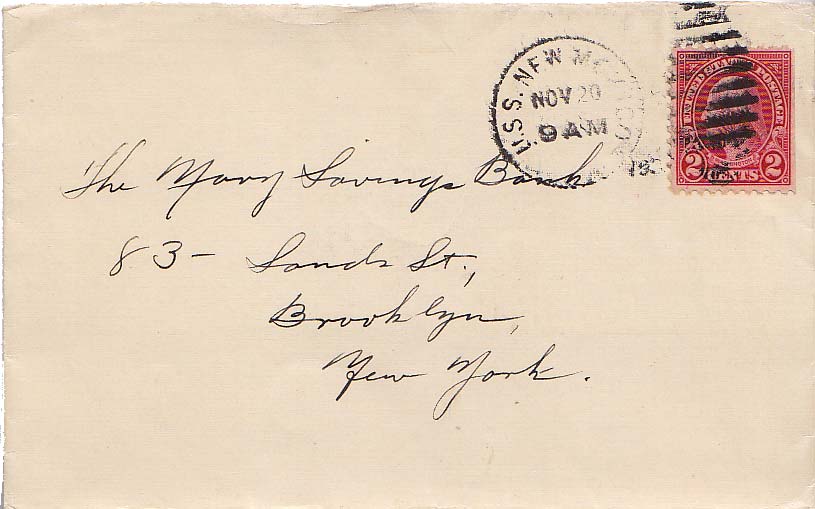 U.S.S. NEW MEXICO
NOV 20
9 AM
UNITED STATES POSTAGE
2 CENTS 2
The Navy Savings Bank
83- Sands St.,
Brooklyn,
New York.